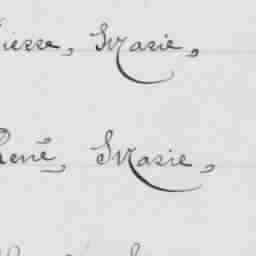 ierre, Marie,
René, Marie,